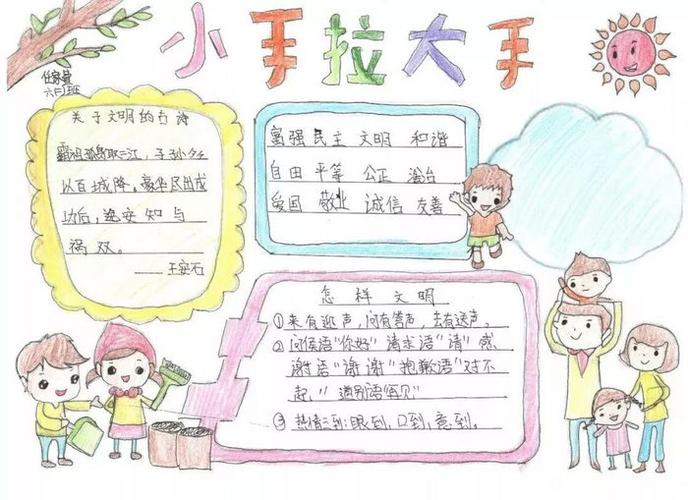 小手拉大手
关于文明的古诗
霸祖孤身取二江，子孙多
以百城降，豪华尽出成
功后，逸安知与
祸双。
——王安石
富强 民主 文明 和谐
自由 平等 公正 法治
爱国 敬业 诚信 友善
怎样文明
①来有迎声，问有答声，走有送声。
②问候语"你好"请求语"请"感
谢语"谢谢"抱歉语"对不
起，"道别语"再见"
③热情三到：眼到，口到，意到。